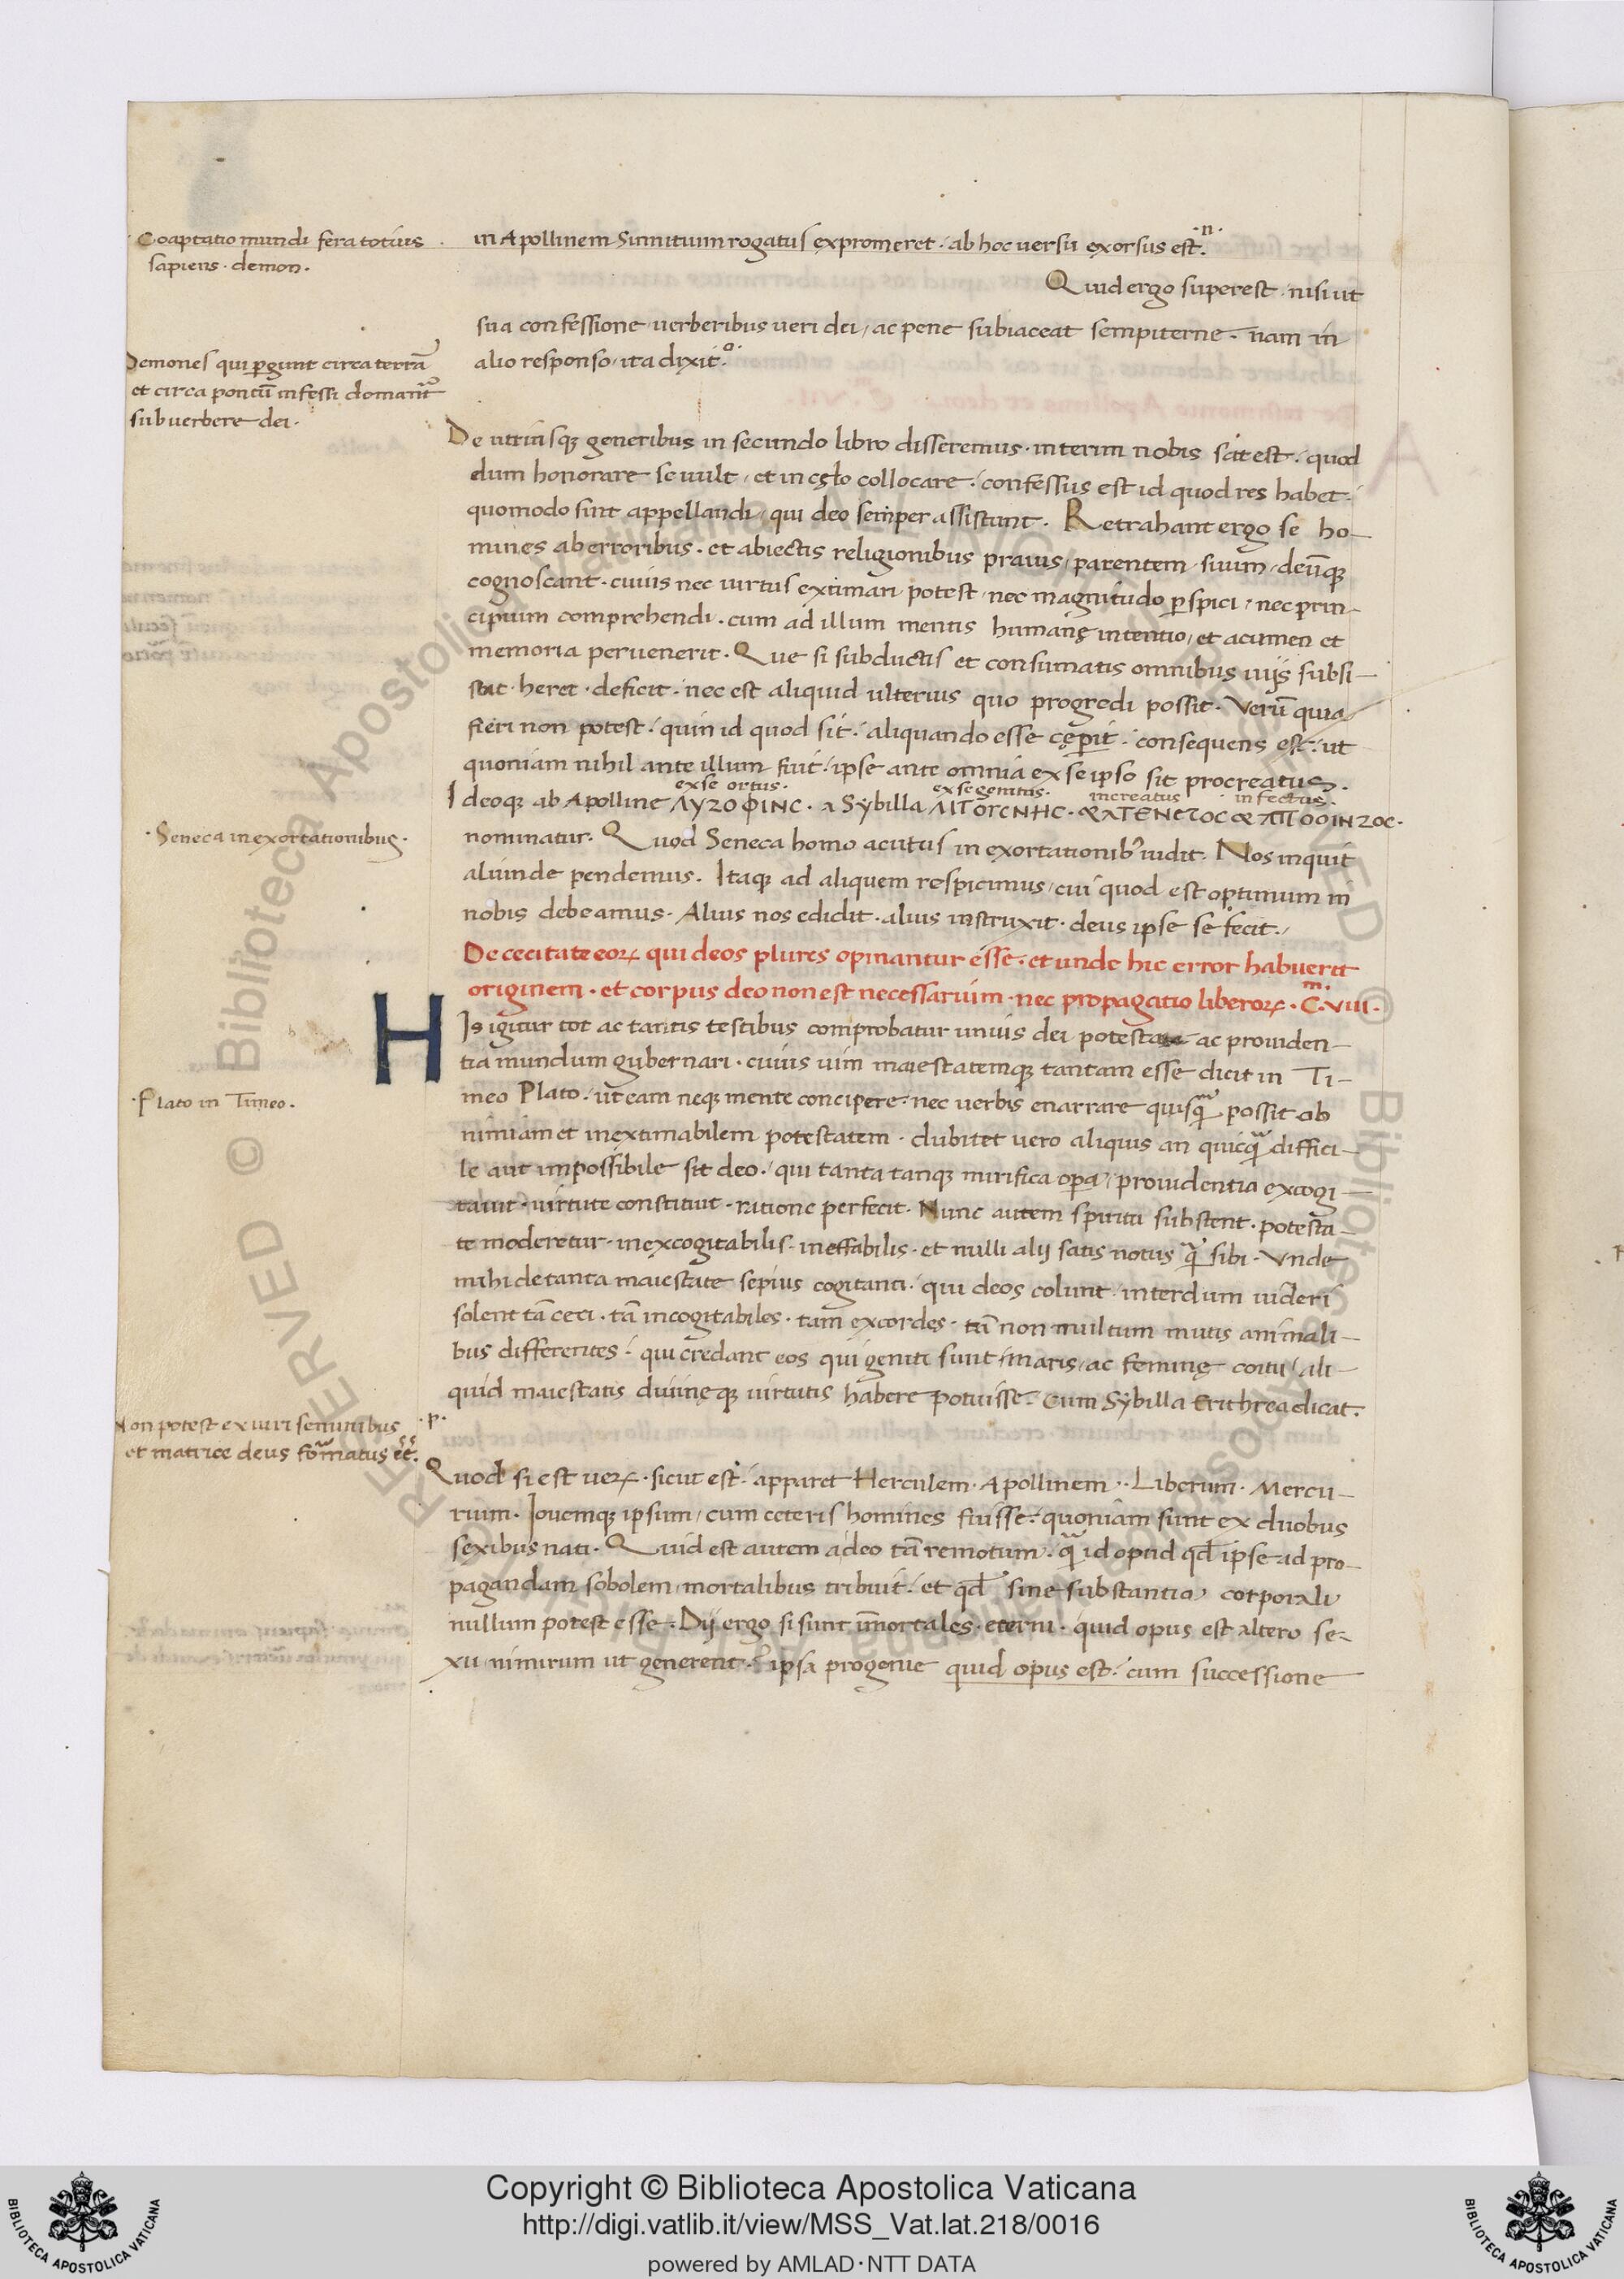 Coaptatio mundi fera totius
sapiens · demon.
in Apollinem Sunituum rogatus expromeret · ab hoc versu exorsus est. n.
Quid ergo superest · nisi ut
sua confessione verberibus veri dei, ac pene subiaceat sempiterne. nam in
alio responso ita dixit. o.
Demones qui ꝑgunt circa terrā
et circa pontū infessi domant̄
sub verbere dei.
De utriusqꝫ generibus in secundo libro disseremus · interim nobis sat est · quod
dum honorare se vult, et in cęlo collocare · confessus est id quod res habet ·
quomodo sint appellandi, qui deo semper assistunt. Retrahant ergo se ho-
mines ab erroribus · et abiectis religionibus pravis, parentem suum, deūqꝫ
cognoscant · cuius nec virtus extimari potest, nec magnitudo ꝑspici, nec prin-
cipium comprehendi · cum ad illum mentis humanę intentio, et acumen et
memoria pervenerit. Que si subductis et consumatis omnibus viis subsi-
stat · heret · deficit · nec est aliquid ulterius quo progredi possit. Verū quia
fieri non potest · quin id quod sit · aliquando esse cęperit · consequens est · ut
quoniam nihil ante illum fuit · ipse ante omnia ex se ipso sit procreatus.
ex se ortus. ex se genitus. increatus infectus.
Ideoqꝫ ab Apolline ΛΥΖΟΦΙΝC. a Sybilla ΛΙΤΟΓCΝΗC.
·Seneca in exortationibus.
nominatur. Quod Seneca homo acutus in exortationib' vidit. Nos inquit
aliunde pendemus. Itaqꝫ ad aliquem respicimus, cui quod est optimum in
nobis debeamus. Alius nos edidit · alius instruxit · deus ipse se fecit.
De cecitate eoꝝ qui deos plures opinantur esse · et unde hic error habuerit
originem · et corpus deo non est necessarium · nec propagatio liberoꝝ · C. VIII. m.
HIs igitur tot ac tantis testibus comprobatur unius dei potestate ac providen-
tia mundum gubernari · cuius vim maiestatemqꝫ tantam esse dicit in Ti-
·Plato in Timeo.
meo Plato · ut eam neqꝫ mente concipere · nec verbis enarrare quisq̄ possit ob
nimiam et inextimabilem potestatem · dubitet vero aliquis an quicq̄ diffici-
le aut impossibile sit deo · qui tanta tanqꝫ mirifica oꝑa, providentia excogi-
tavit · virtute constituit · ratione perfecit. Nunc autem spiritu substent · potesta-
te moderetur · inexcogitabilis · ineffabilis · et nulli alij satis notus q̄ sibi. Unde
mihi de tanta maiestate sepius cogitanti · qui deos colunt · interdum videri
solent tā ceci · tā incogitabiles · tam excordes · tā non multum mutis animali-
bus differentes · qui credant eos qui geniti sunt maris, ac feminę coitu, ali-
quid maiestatis divinęqꝫ virtutis habere potuisse. Cum Sybilla Erithrea dicat.
Non potest ex viri seminibus
et matrice deus formatus eē. ·p·
Quod si est veꝝ · sicut est · apparet Herculem · Apollinem · Liberum · Mercu-
rium. Iovemqꝫ ipsum, cum ceteris homines fuisse · quoniam sunt ex duobus
sexibus nati. Quid est autem adeo tā remotum · q̄ id opud qd̄ ipse ad pro-
pagandam sobolem mortalibus tribuit · et qd̄ sine substantia corporali
nullum potest esse. Dij ergo si sunt īmortales · eterni · quid opus est altero se-
xu nimirum ut generent · ipsa progenie quid opus est · cum successione
Copyright © Biblioteca Apostolica Vaticana
http://digi.vatlib.it/view/MSS_Vat.lat.218/0016
powered by AMLAD · NTT DATA
BIBLIOTECA APOSTOLICA VATICANA
BIBLIOTECA APOSTOLICA VATICANA